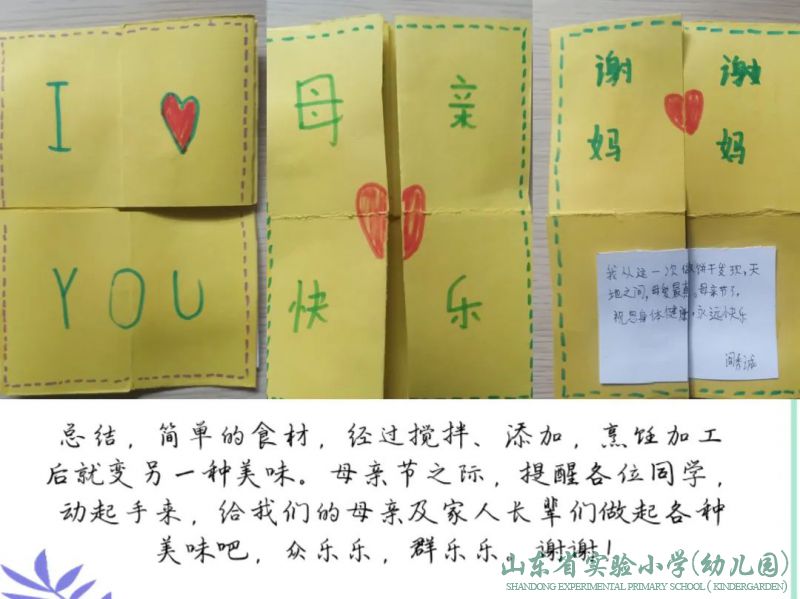 I
YOU
母亲
快乐
谢谢
妈妈
我从这一次做饼干发现,天
地之间,母爱最真。母亲节了,
祝您身体健康,永远快乐
总结，简单的食材，经过搅拌、添加，烹饪加工
后就变另一种美味。母亲节之际，提醒各位同学，
动起手来，给我们的母亲及家人长辈们做起各种
美味吧，众乐乐，群乐乐。谢谢！
山东省实验小学(幼儿园)
SHANDONG EXPERIMENTAL PRIMARY SCHOOL ( KINDERGARDEN)